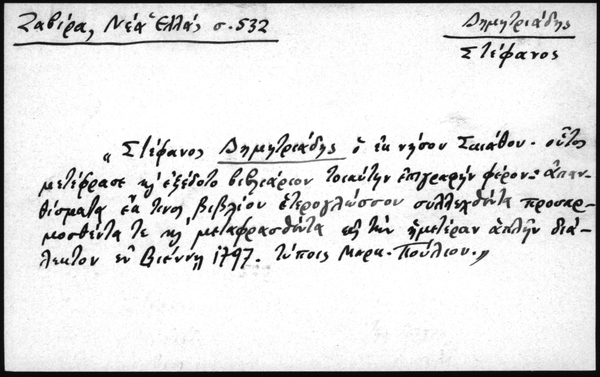 Ζαβίρα, Νέα Ἑλλάς σ. 532
Δημητριάδης
Στέφανος
"Στέφανος Δημητριάδης ὁ ἐκ νήσου Σκιάθου. οὗτος
μετέφρασε κ' ἐξέδοτο βιβλιάριον τοιαύτην ἐπιγραφήν φέρον: ἀπαν-
θίσματα ἔκ τινος βιβλίου ἑτερογλώσσου συλλεχθέντα προσαρ-
μοσθέντα τε κ' μεταφρασθέντα εἰς τὴν ἡμετέραν ἁπλῆν διά-
λεκτον ἐν Βιέννῃ 1797. τύποις Μαρκ. Πούλιου."